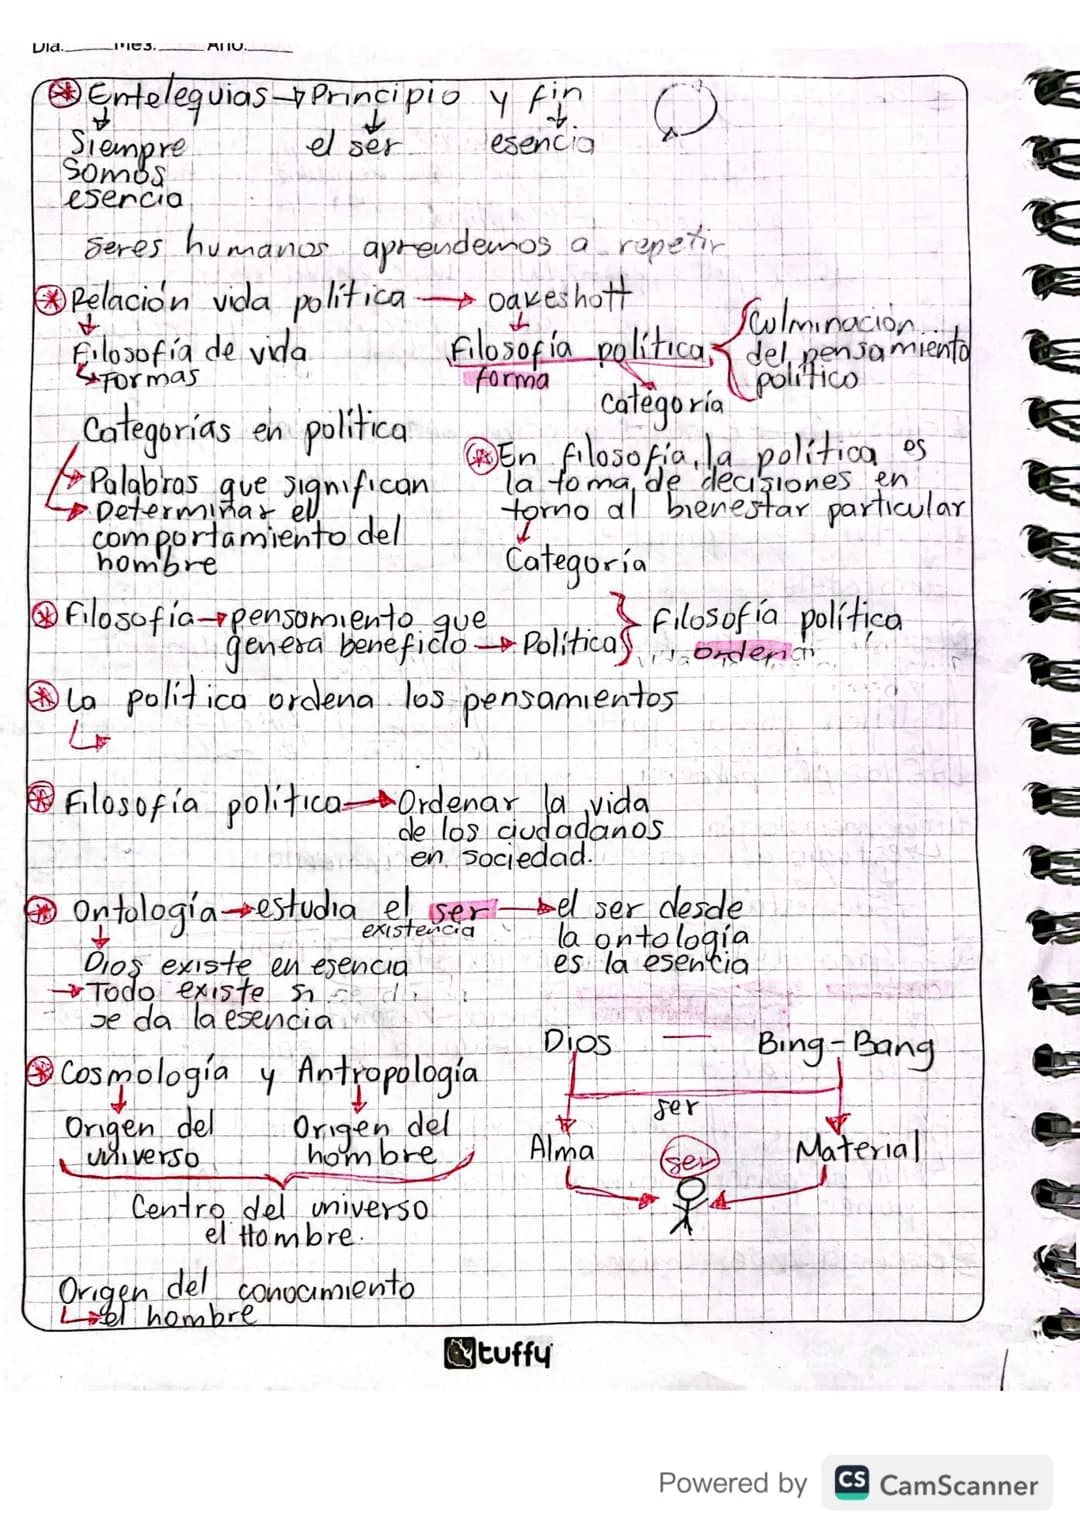 Día.____Mes.____Año.____
Entelequias → Principio y fin
Siempre
somos
esencia
el ser
esencia
Seres humanos aprendemos a repetir
Relación vida política → Oakeshott
Filosofía de vida
Formas
Filosofía política
forma
Categoría
Culminación
del pensamiento
político
Categorías en política
Palabras que significan
Determinar el
comportamiento del
hombre
En filosofía, la política es
la toma de decisiones en
torno al bienestar particular
Categoría
Filosofía → pensamiento que
genera beneficio → Política
Filosofía política
ordena
La política ordena los pensamientos
Filosofía política → Ordenar la vida
de los ciudadanos
en sociedad.
Ontología → estudia el ser → el ser desde
existencia
la ontología
es la esencia
Dios existe en esencia
→ Todo existe si
se da la esencia
Cosmología y Antropología
Origen del
universo
Origen del
hombre
Centro del universo
el Hombre.
Dios — Bing-Bang
ser
Alma
Material
ser
Origen del conocimiento
el hombre
tuffy
Powered by CS CamScanner